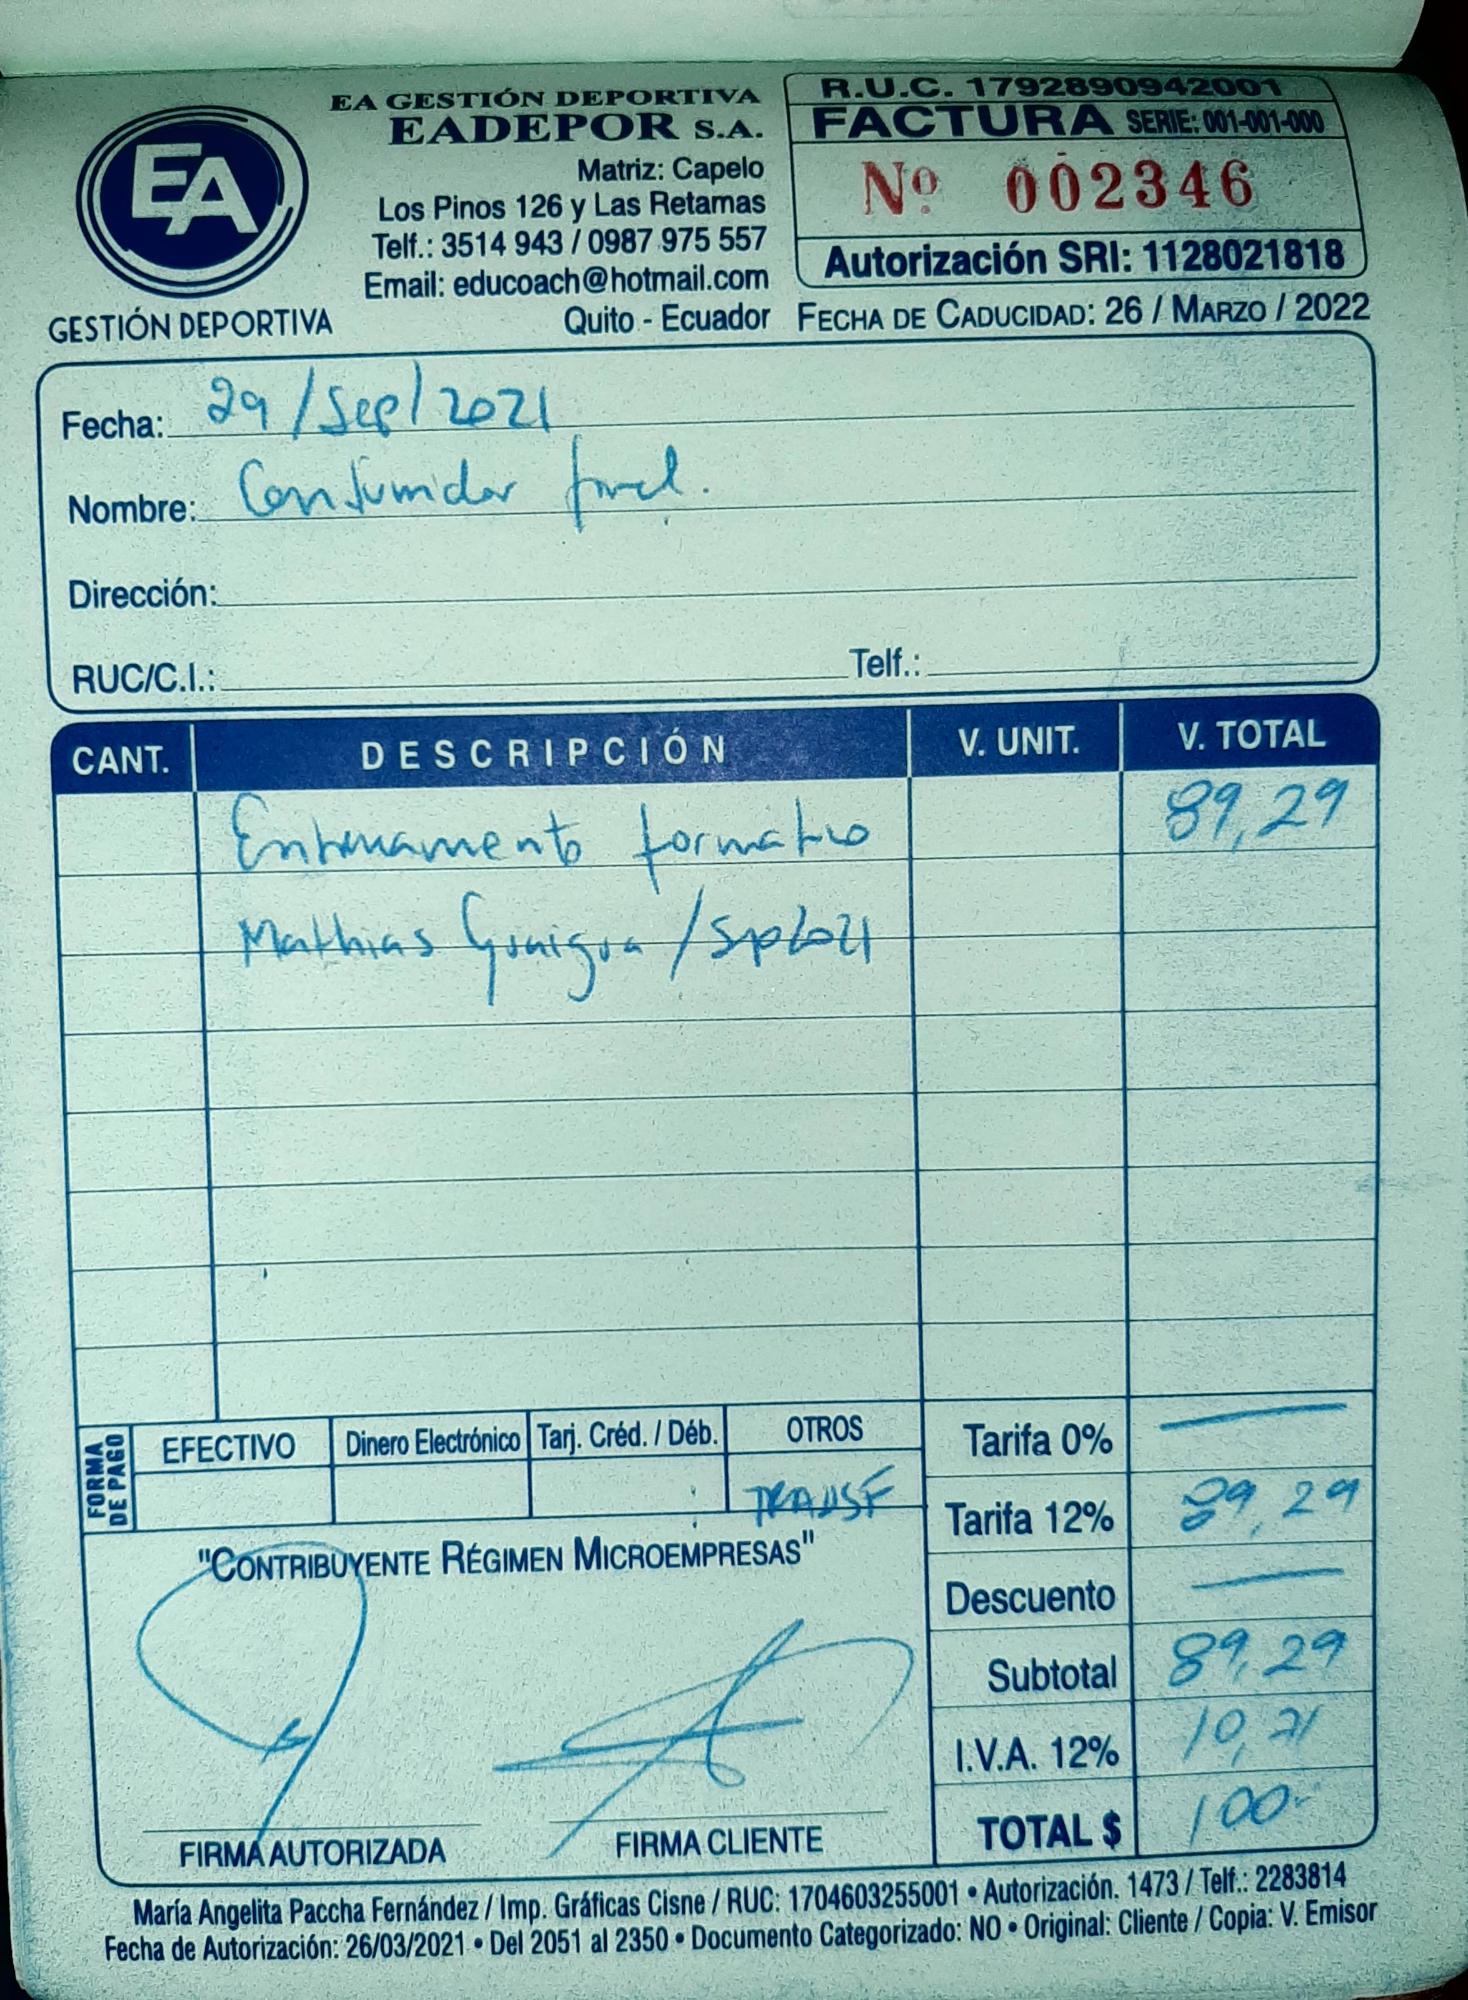 EA GESTIÓN DEPORTIVA
EADEPOR S.A.
Matriz: Capelo
Los Pinos 126 y Las Retamas
Telf.: 3514 943 / 0987 975 557
Email: educoach@hotmail.com
Quito - Ecuador
EA
GESTIÓN DEPORTIVA
R.U.C. 1792890942001
FACTURA SERIE: 001-001-000
Nº 002346
Autorización SRI: 1128021818
FECHA DE CADUCIDAD: 26 / MARZO / 2022
Fecha: 29/Sep/2021
Nombre: Consumidor final.
Dirección:
RUC/C.I.: Telf.:
CANT. DESCRIPCIÓN V. UNIT. V. TOTAL
Entrenamiento formativo 89,29
Mathias Guaigua / Sep2021
FORMA DE PAGO
EFECTIVO Dinero Electrónico Tarj. Créd. / Déb. OTROS
TRANSF
Tarifa 0% —
Tarifa 12% 89,29
Descuento —
Subtotal 89,29
I.V.A. 12% 10,71
TOTAL $ 100.-
"CONTRIBUYENTE RÉGIMEN MICROEMPRESAS"
FIRMA AUTORIZADA FIRMA CLIENTE
María Angelita Paccha Fernández / Imp. Gráficas Cisne / RUC: 1704603255001 • Autorización. 1473 / Telf.: 2283814
Fecha de Autorización: 26/03/2021 • Del 2051 al 2350 • Documento Categorizado: NO • Original: Cliente / Copia: V. Emisor